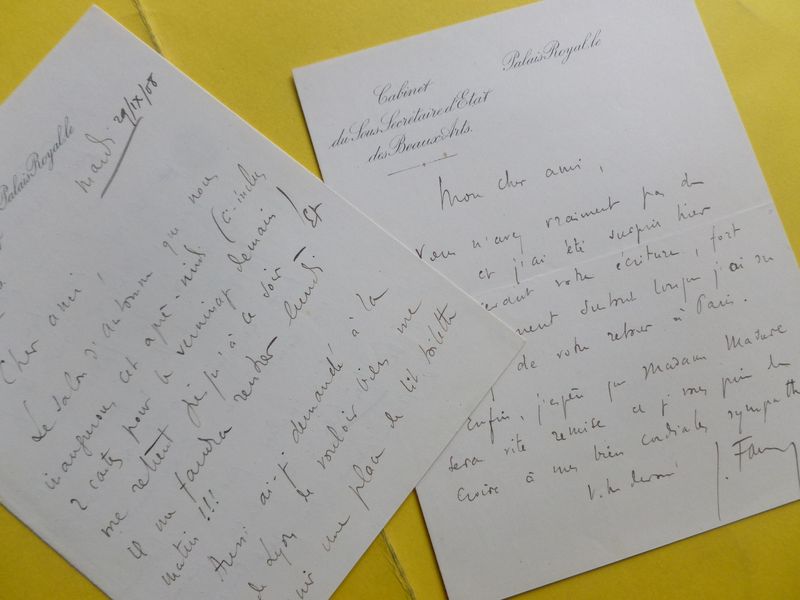 Palais Royal, le
mardi 29/IX/08
Cher ami,
Le Salon d'automne que nous
inaugurons cet après-midi (ci-inclus
2 cartes pour le vernissage demain)
me retient jusqu'à ce soir. Et
il me faudra rentrer lundi
matin !!!
Aussi ai-je demandé à la
de Lyon de vouloir bien me
une place de lit-toilette
Cabinet
du Sous Secrétaire d'Etat
des Beaux Arts.
Palais Royal, le
Mon cher ami,
Vous n'avez vraiment pas de
et j'ai été surpris hier
votre écriture, fort
surtout lorsque j'ai su
de votre retour à Paris.
Enfin, j'espère que Madame
sera vite remise et je vous prie de
croire à mes bien cordiales
V. bien dévoué